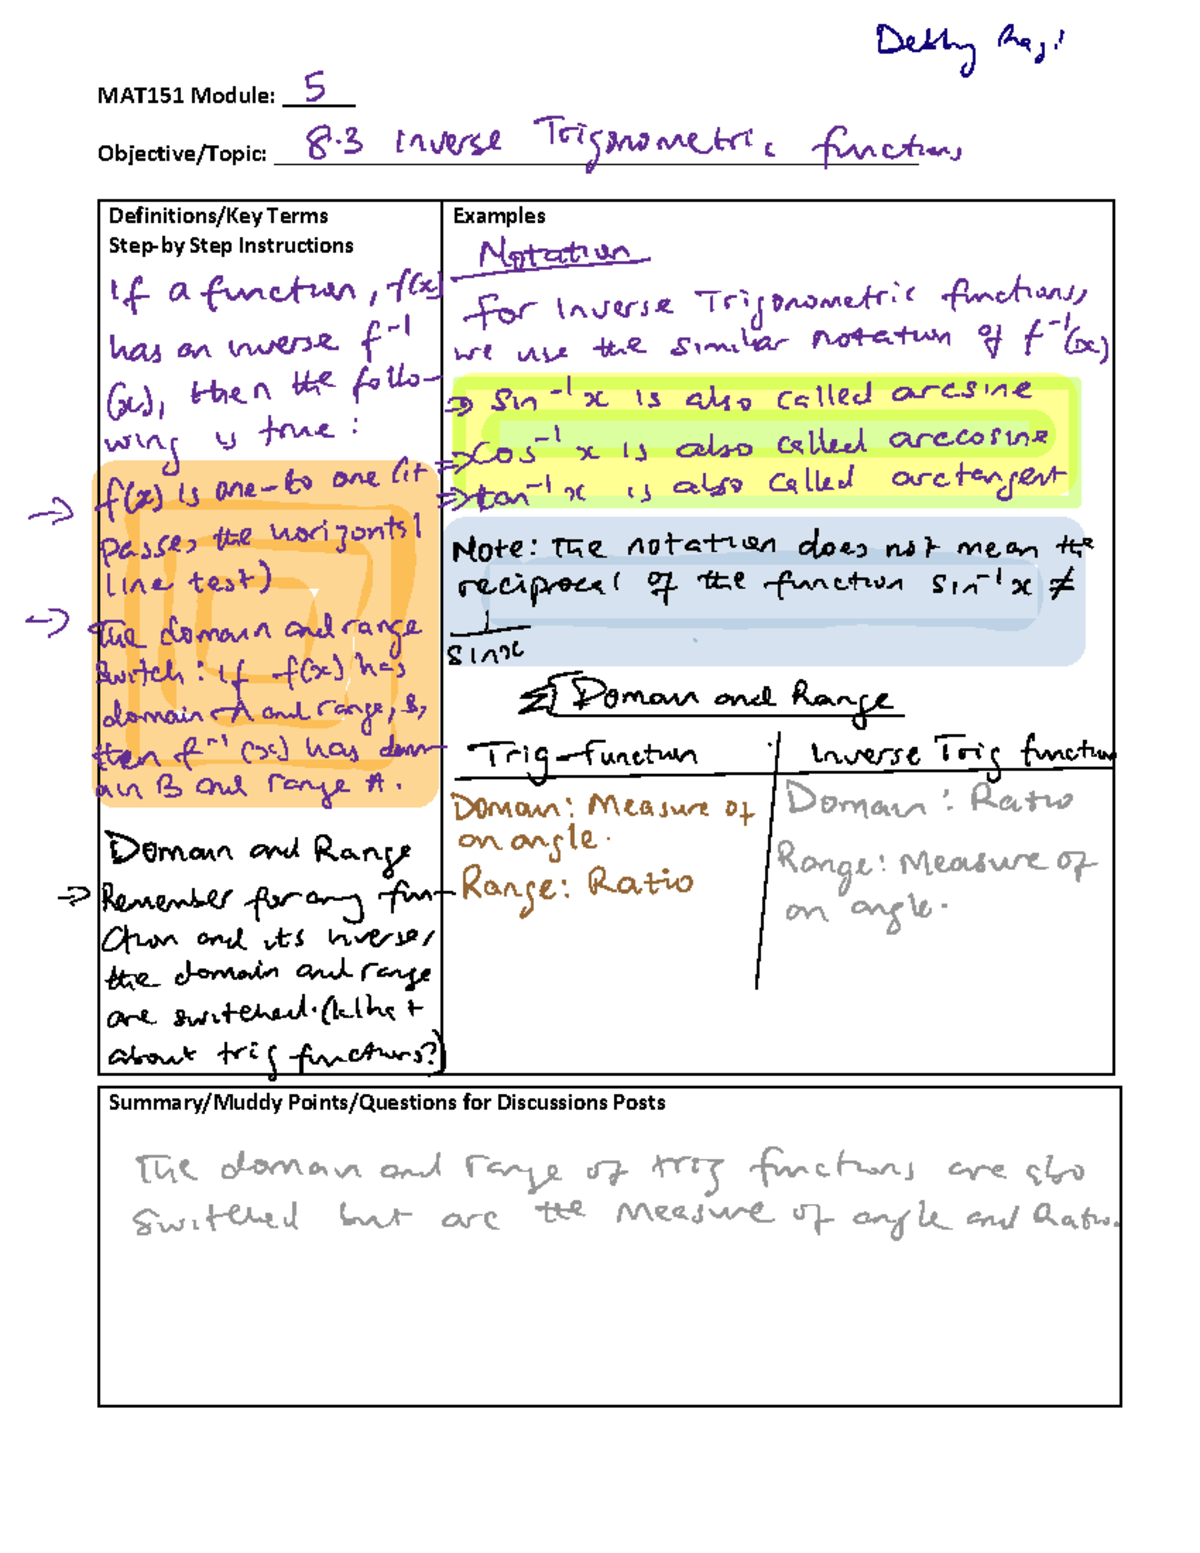 Debby
MAT151 Module: 5
Objective/Topic: 8.3 Inverse Trigonometric functions
Definitions/Key Terms
Step-by Step Instructions
If a function, f(x)
has an inverse f⁻¹
(x), then the follo-
wing is true:
→ f(x) is one-to one (it
passes the horizontal
line test)
→ The domain and range
switch: if f(x) has
domain A and range, B,
then f⁻¹(x) has dom-
ain B and range A.
Domain and Range
→ Remember for any fun-
ction and its inverse,
the domain and range
are switched. (What
about trig functions?)
Examples
Notation
For Inverse Trigonometric functions,
we use the similar notation of f⁻¹(x)
⇒ sin⁻¹x is also called arcsine
⇒ cos⁻¹x is also called arccosine
⇒ tan⁻¹x is also called arctangent
Note: The notation does not mean the
reciprocal of the function sin⁻¹x ≠
1
sinx
Domain and Range
Trig-Function
Domain: Measure of
an angle.
Range: Ratio
Inverse Trig function
Domain: Ratio
Range: Measure of
an angle.
Summary/Muddy Points/Questions for Discussions Posts
The domain and range of trig functions are also
switched but are the measure of angle and Ratio.